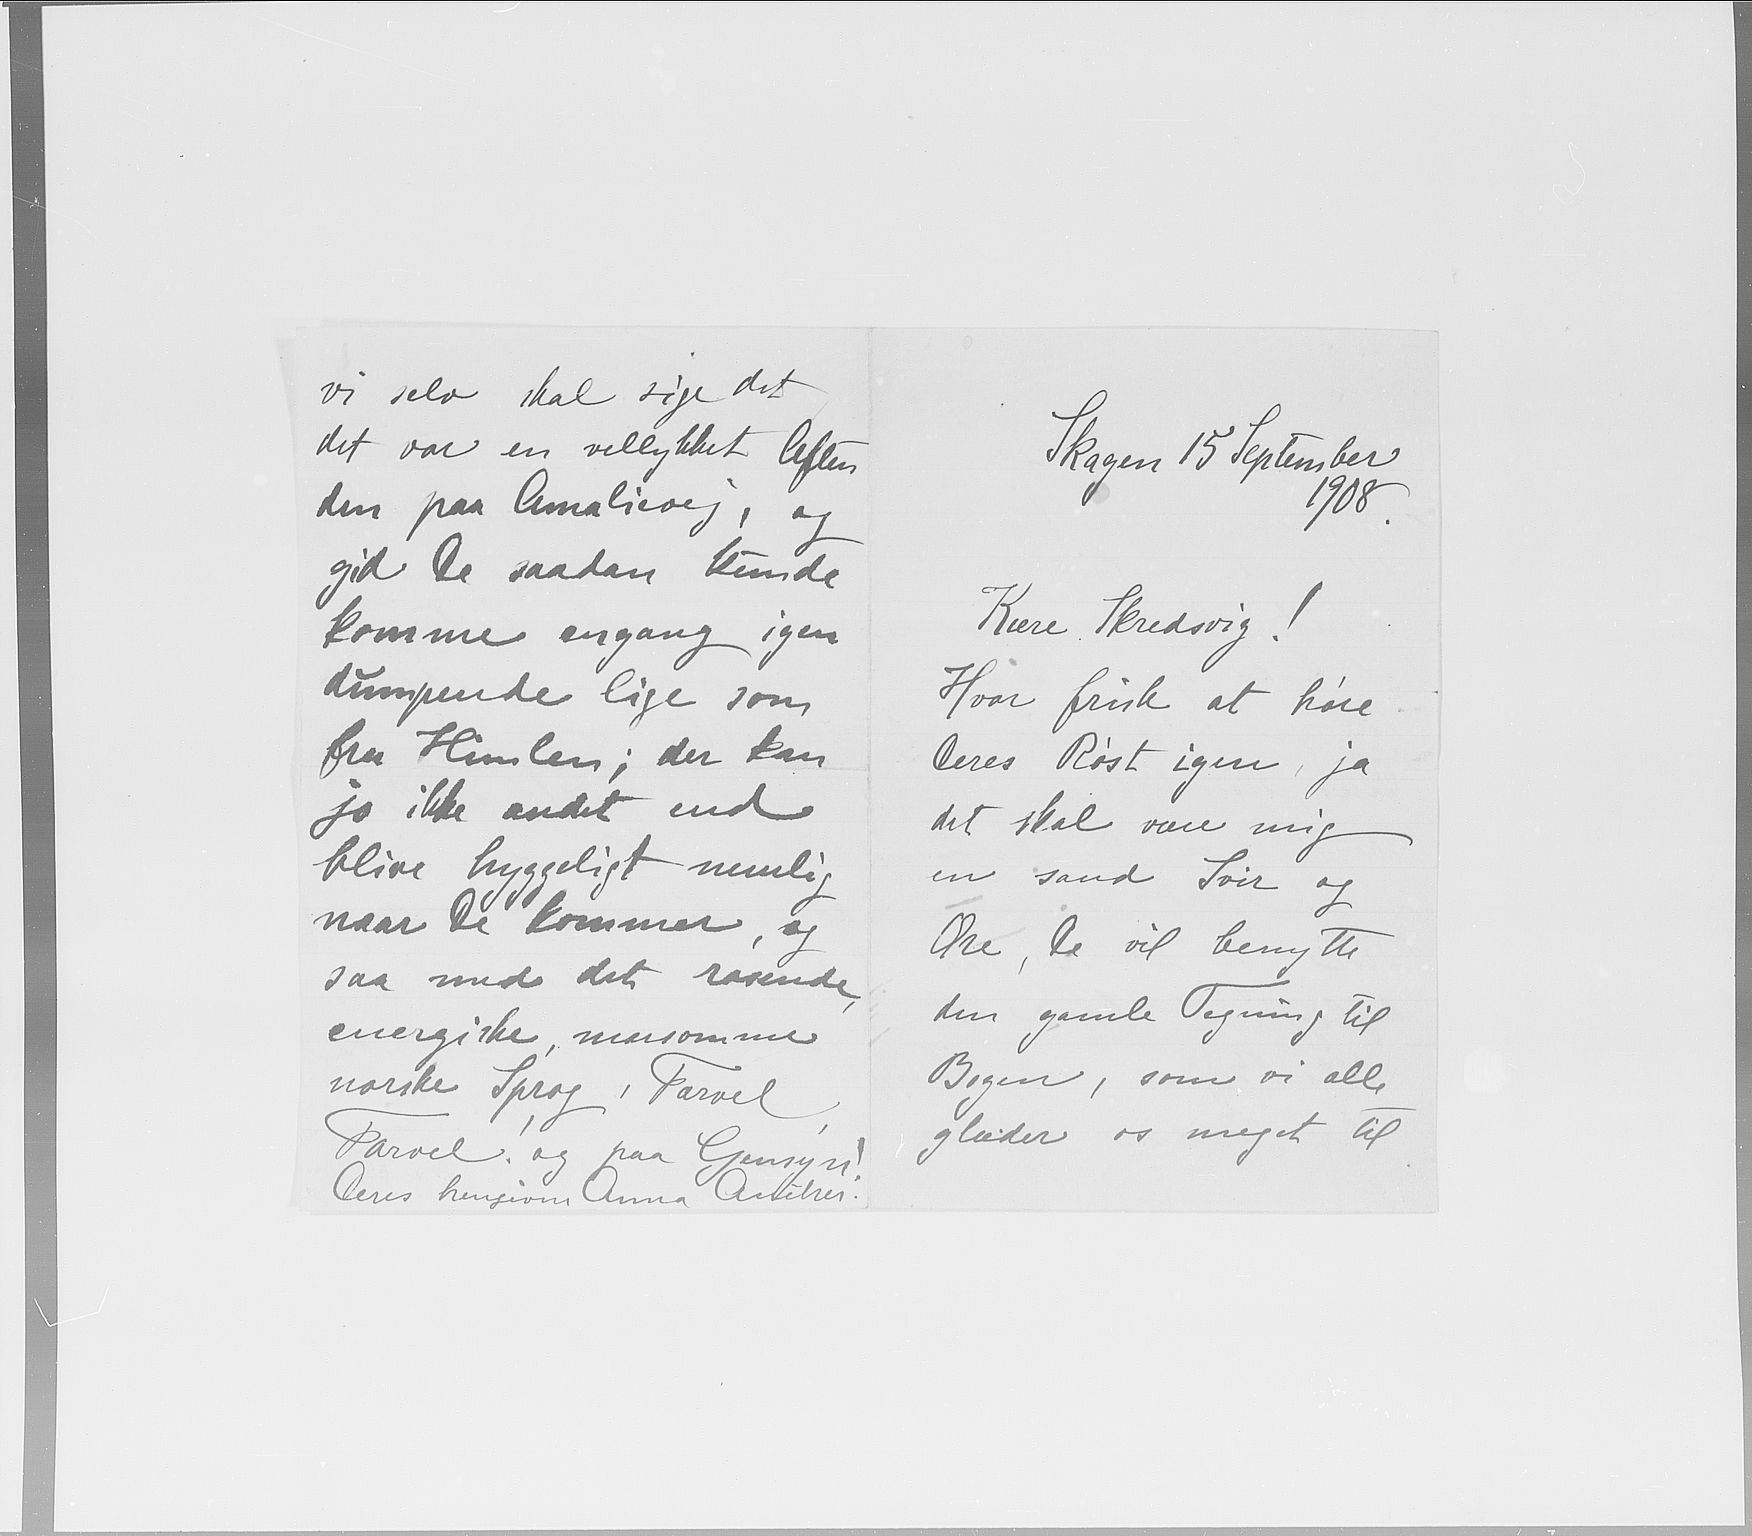 Skagen 15 September
1908.
Kære Skredsvig!
Hvor frisk at høre
Deres Røst igen, ja
det skal være mig
en sand Svir og
Ære, De vil benytte
den gamle Tegning til
Bogen, som vi alle
glæder os meget til
vi selv skal sige det
det var en vellykket Aften
den paa Amalievej, og
gid De saadan kunde
komme engang igen
dumpende lige som
fra Himlen; der kan
jo ikke andet end
blive hyggeligt nemlig
naar De kommer, og
saa med det rasende,
energiske, morsomme
norske Sprog, Farvel,
Farvel! og paa Gensyn!
Deres hengivne Anna Ancher.